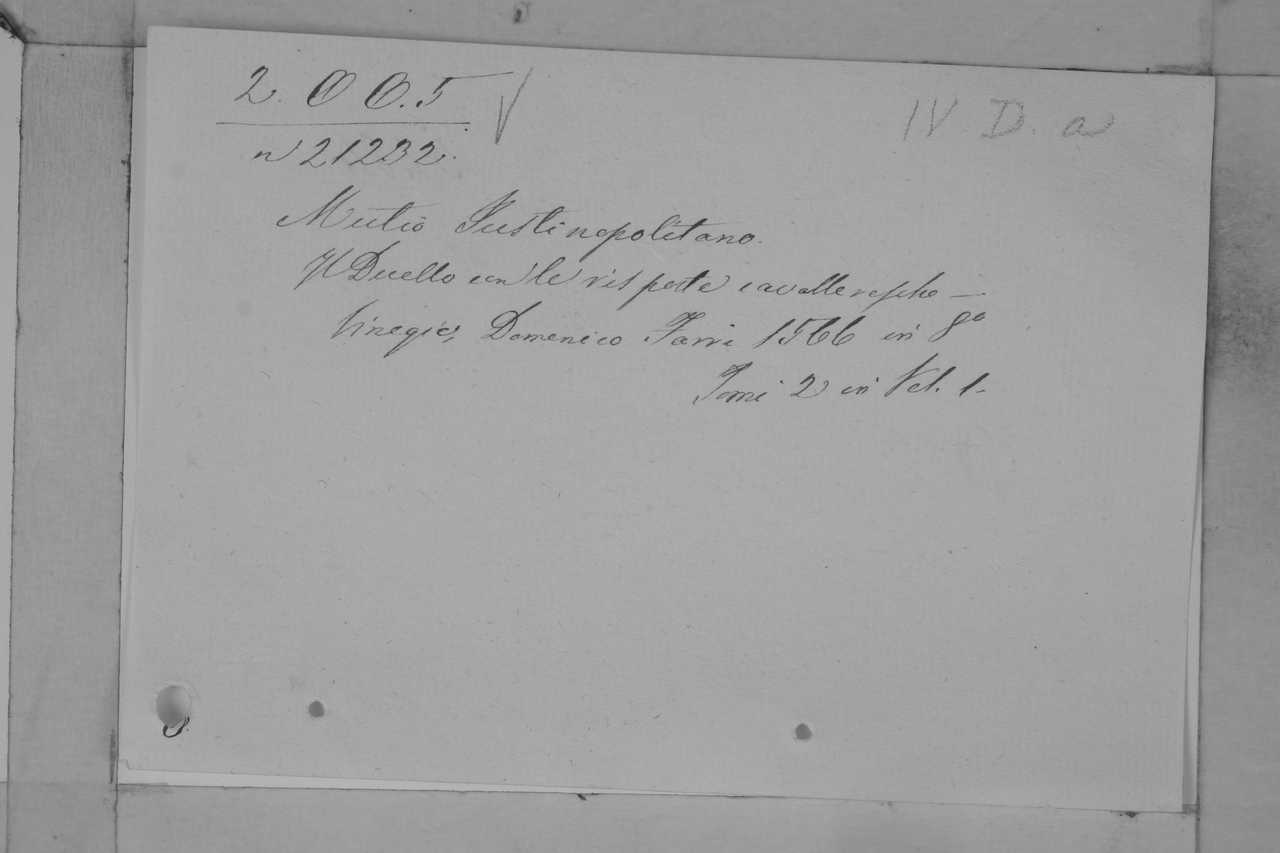 2. O O. 5 √
IV D. a
n 21232.
Mutio Justinopolitano.
Il Duello con le risposte cavalleresche —
Vinegia, Domenico Farri 1566 in 8º
Tomi 2 in Vol. 1.